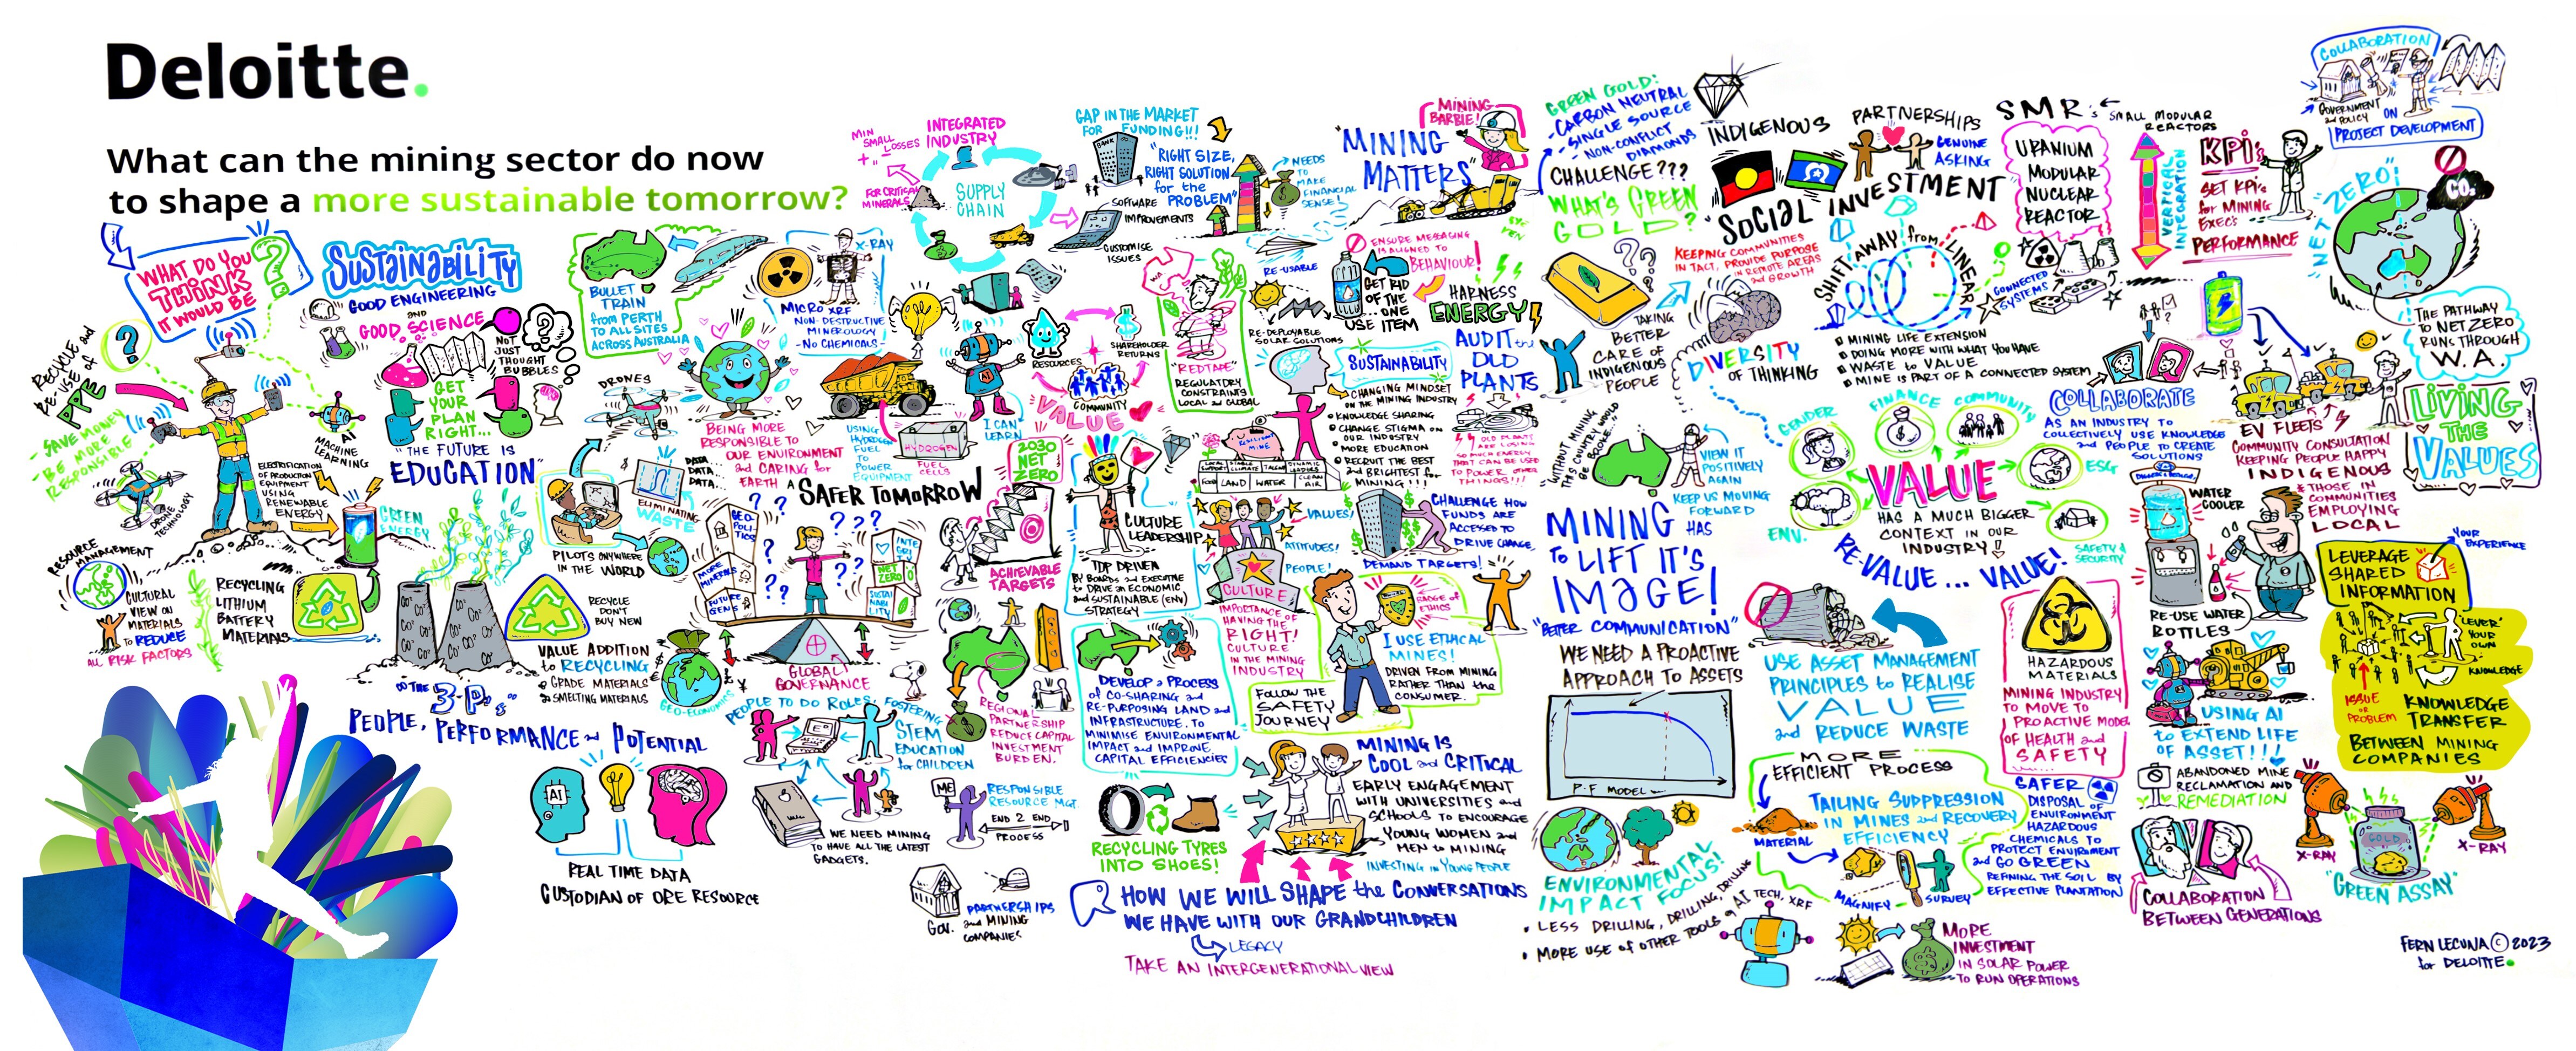 Deloitte.
What can the mining sector do now
to shape a more sustainable tomorrow?
WHAT DO YOU
THINK
IT WOULD BE
?
RECYCLE and
RE-USE of
PPE
- SAVE MONEY
- BE MORE
RESPONSIBLE
DRONE
TECHNOLOGY
AI
MACHINE
LEARNING
ELECTRIFICATION
OF PRODUCTION
EQUIPMENT
USING
RENEWABLE
ENERGY
GREEN
ENERGY
RESOURCE
MANAGEMENT
CULTURAL
VIEW ON
MATERIALS
to REDUCE
ALL RISK FACTORS
RECYCLING
LITHIUM
BATTERY
MATERIALS
SUSTAINABILITY
GOOD ENGINEERING
AND
GOOD SCIENCE
NOT
JUST
THOUGHT
BUBBLES
GET
YOUR
PLAN
RIGHT...
"THE FUTURE IS
EDUCATION"
BULLET
TRAIN
from PERTH
TO ALL SITES
ACROSS AUSTRALIA
DRONES
PILOTS ANYWHERE
IN THE WORLD
ELIMINATING
WASTE
DATA
DATA
DATA..
RECYCLE
DON'T
BUY NEW
VALUE ADDITION
to RECYCLING
GRADE MATERIALS
SMELTING MATERIALS
THE 3-P's
PEOPLE, PERFORMANCE and POTENTIAL
AI
REAL TIME DATA
CUSTODIAN OF ORE RESOURCE
X-RAY
MICRO XRF
NON-DESTRUCTIVE
MINEROLOGY
-NO CHEMICALS-
BEING MORE
RESPONSIBLE TO
OUR ENVIRONMENT
and CARING for
EARTH
A SAFER TOMORROW
USING
HYDROGEN
FUEL
TO
POWER
EQUIPMENT
HYDROGEN
FUEL
CELLS
GEO-
POLI-
TICS
MORE
MINERALS
FUTURE
GENS
INTE
GRI
NET
ZERO
SUSTAI
NABI
LITY
GLOBAL
GOVERNANCE
GEO-ECONOMICS
PEOPLE TO DO ROLES
FOSTERING
STEM
EDUCATION
for CHILDREN
WE NEED MINING
TO HAVE ALL THE LATEST
GADGETS.
ME
RESPONSIBLE
RESOURCE MGT.
END 2 END
PROCESS
GOV. and MINING
COMPANIES
PARTNERSHIPS
MIN
SMALL
LOSSES
FOR CRITICAL
MINERALS
INTEGRATED
INDUSTRY
SUPPLY
CHAIN
SOFTWARE
IMPROVEMENTS
CUSTOMISE
ISSUES
AI
I CAN
LEARN
RESOURCES
SHAREHOLDER
RETURNS
COMMUNITY
VALUE
2030
NET
ZERO
ACHIEVABLE
TARGETS
REGIONAL
PARTNERSHIP
REDUCE CAPITAL
INVESTMENT
BURDEN.
GAP IN THE MARKET
FOR FUNDING!!!
BANK
"RIGHT SIZE,
RIGHT SOLUTION
for the
PROBLEM"
NEEDS
TO
MAKE
FINANCIAL
SENSE!
WA
"REDTAPE"
REGULATORY
CONSTRAINTS
LOCAL and GLOBAL
CULTURE
LEADERSHIP
TOP DRIVEN
BY BOARDS and EXECUTIVE
to DRIVE an ECONOMIC
and SUSTAINABLE (ENV)
STRATEGY
DEVELOP a PROCESS
of CO-SHARING and
RE-PURPOSING LAND and
INFRASTRUCTURE. TO
MINIMISE ENVIRONMENTAL
IMPACT and IMPROVE
CAPITAL EFFICIENCIES
RECYCLING TYRES
INTO SHOES!
RE-USABLE
RE-DEPLOYABLE
SOLAR SOLUTIONS
RESILIENT
MINE
FOOD
LAND
WATER
CLEAN
AIR
VALUES!
ATTITUDES!
PEOPLE!
CULTURE
IMPORTANCE OF
HAVING THE
RIGHT!
CULTURE
IN THE MINING
INDUSTRY
FOLLOW THE
SAFETY
JOURNEY
"MINING
MATTERS"
MINING
BARBIE!
ENSURE MESSAGING
IS ALIGNED TO
BEHAVIOUR!
GET RID
OF THE
ONE
USE ITEM
HARNESS
ENERGY
SUSTAINABILITY
CHANGING MINDSET
ON THE MINING INDUSTRY
KNOWLEDGE SHARING
CHANGE STIGMA ON
OUR INDUSTRY
MORE EDUCATION
RECRUIT THE BEST
and BRIGHTEST for
MINING!!!
AUDIT the
OLD
PLANTS
OLD PLANTS
ARE LOSING
SO MUCH ENERGY
THAT CAN BE USED
TO POWER OTHER
THINGS!!!
CHALLENGE HOW
FUNDS ARE
ACCESSED TO
DRIVE CHANGE,
DEMAND TARGETS!
BADGE of
ETHICS
I USE ETHICAL
MINES!
DRIVEN FROM MINING
RATHER THAN the
CONSUMER.
MINING IS
COOL and CRITICAL
EARLY ENGAGEMENT
WITH UNIVERSITIES and
SCHOOLS TO ENCOURAGE
YOUNG WOMEN and
MEN to MINING
INVESTING in YOUNG PEOPLE
HOW WE WILL SHAPE the CONVERSATIONS
WE HAVE WITH OUR GRANDCHILDREN
LEGACY
TAKE AN INTERGENERATIONAL VIEW
GREEN GOLD:
- CARBON NEUTRAL
- SINGLE SOURCE
- NON-CONFLICT
DIAMONDS
CHALLENGE???
WHAT'S GREEN
GOLD?
TAKING
BETTER
CARE OF
INDIGENOUS
PEOPLE
WITHOUT MINING
THIS COUNTRY WOULD
BE BROKE...
VIEW IT
POSITIVELY
AGAIN
KEEP US MOVING
FORWARD
MINING HAS
TO LIFT IT'S
IMAGE!
"BETTER COMMUNICATION"
WE NEED A PROACTIVE
APPROACH TO ASSETS
P-F MODEL
ENVIRONMENTAL
IMPACT FOCUS!
• LESS DRILLING, DRILLING, DRILLING
• MORE USE OF OTHER TOOLS eg AI TECH, XRF
INDIGENOUS
PARTNERSHIPS
GENUINE
ASKING
"SOCIAL INVESTMENT"
KEEPING COMMUNITIES
IN TACT, PROVIDE PURPOSE
IN REMOTE AREAS
and GROWTH
DIVERSITY
OF THINKING
SHIFT AWAY from LINEAR
CONNECTED
SYSTEMS
MINING LIFE EXTENSION
DOING MORE WITH WHAT YOU HAVE
WASTE to VALUE
MINE IS PART OF A CONNECTED SYSTEM
GENDER
FINANCE
COMMUNITY
ESG
ENV.
SAFETY &
SECURITY
VALUE
HAS A MUCH BIGGER
CONTEXT IN OUR
INDUSTRY!!
RE-VALUE... VALUE!
USE ASSET MANAGEMENT
PRINCIPLES to REALISE
VALUE
and REDUCE WASTE
MORE
EFFICIENT PROCESS
MATERIAL
TAILING SUPPRESSION
IN MINES and RECOVERY
EFFICIENCY
MAGNIFY
SURVEY
MORE
INVESTMENT
IN SOLAR POWER
TO RUN OPERATIONS
SMR's
SMALL MODULAR
REACTORS
URANIUM
MODULAR
NUCLEAR
REACTOR
VERTICAL
INTEGRATION
KPI's
SET KPI's
for MINING
EXEC's
PERFORMANCE
COLLABORATE
AS AN INDUSTRY TO
COLLECTIVELY USE KNOWLEDGE
and PEOPLE TO CREATE
SOLUTIONS
EV FLEETS
COMMUNITY CONSULTATION
KEEPING PEOPLE HAPPY
INDIGENOUS
THOSE IN
COMMUNITIES
EMPLOYING
LOCAL
WATER
COOLER
RE-USE WATER
BOTTLES
HAZARDOUS
MATERIALS
MINING INDUSTRY
TO MOVE TO
PROACTIVE MODEL
OF HEALTH and
SAFETY
USING AI
to EXTEND LIFE
OF ASSET!!!
SAFER
DISPOSAL OF
ENVIRONMENT
HAZARDOUS
CHEMICALS TO
PROTECT ENVIROMENT
and GO GREEN
REFINING THE SOIL BY
EFFECTIVE PLANTATION
ABANDONED MINE
RECLAMATION AND
REMEDIATION
COLLABORATION
BETWEEN GENERATIONS
COLLABORATION
GOVERNMENT
and POLICY
ON
PROJECT DEVELOPMENT
"NET ZERO!"
CO₂
THE PATHWAY
TO NET ZERO
RUNS THROUGH
W.A.
LIVING
THE
VALUES
LEVERAGE
SHARED
INFORMATION
YOUR
EXPERIENCE
'LEVER'
YOUR
OWN
KNOWLEDGE
ISSUE
OR
PROBLEM
KNOWLEDGE
TRANSFER
BETWEEN MINING
COMPANIES
X-RAY
GOLD
X-RAY
"GREEN ASSAY"
FERN LECUNA © 2023
for DELOITTE.